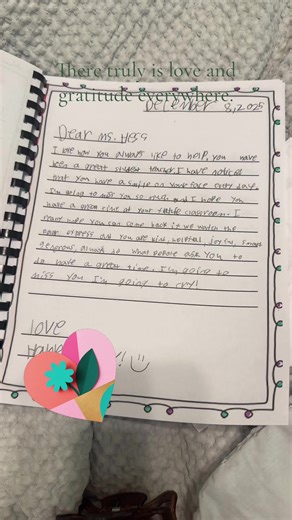 There truly is love and
gratitude everywhere.
December 8, 2025
Dear Ms. Hess
I love how you always like to help, you have
been a great student teacher, I have noticed
that you have a smile on your face every day.
I'm going to miss you so much and I hope you
have a great time at your future classrooms. I
really wish you can come back it we watch the
polar express but you are kind, helpful, joyful, smart
respond much to what people ask you to
do have a great time I'm going to
miss you I'm going to cry!
love
! :)